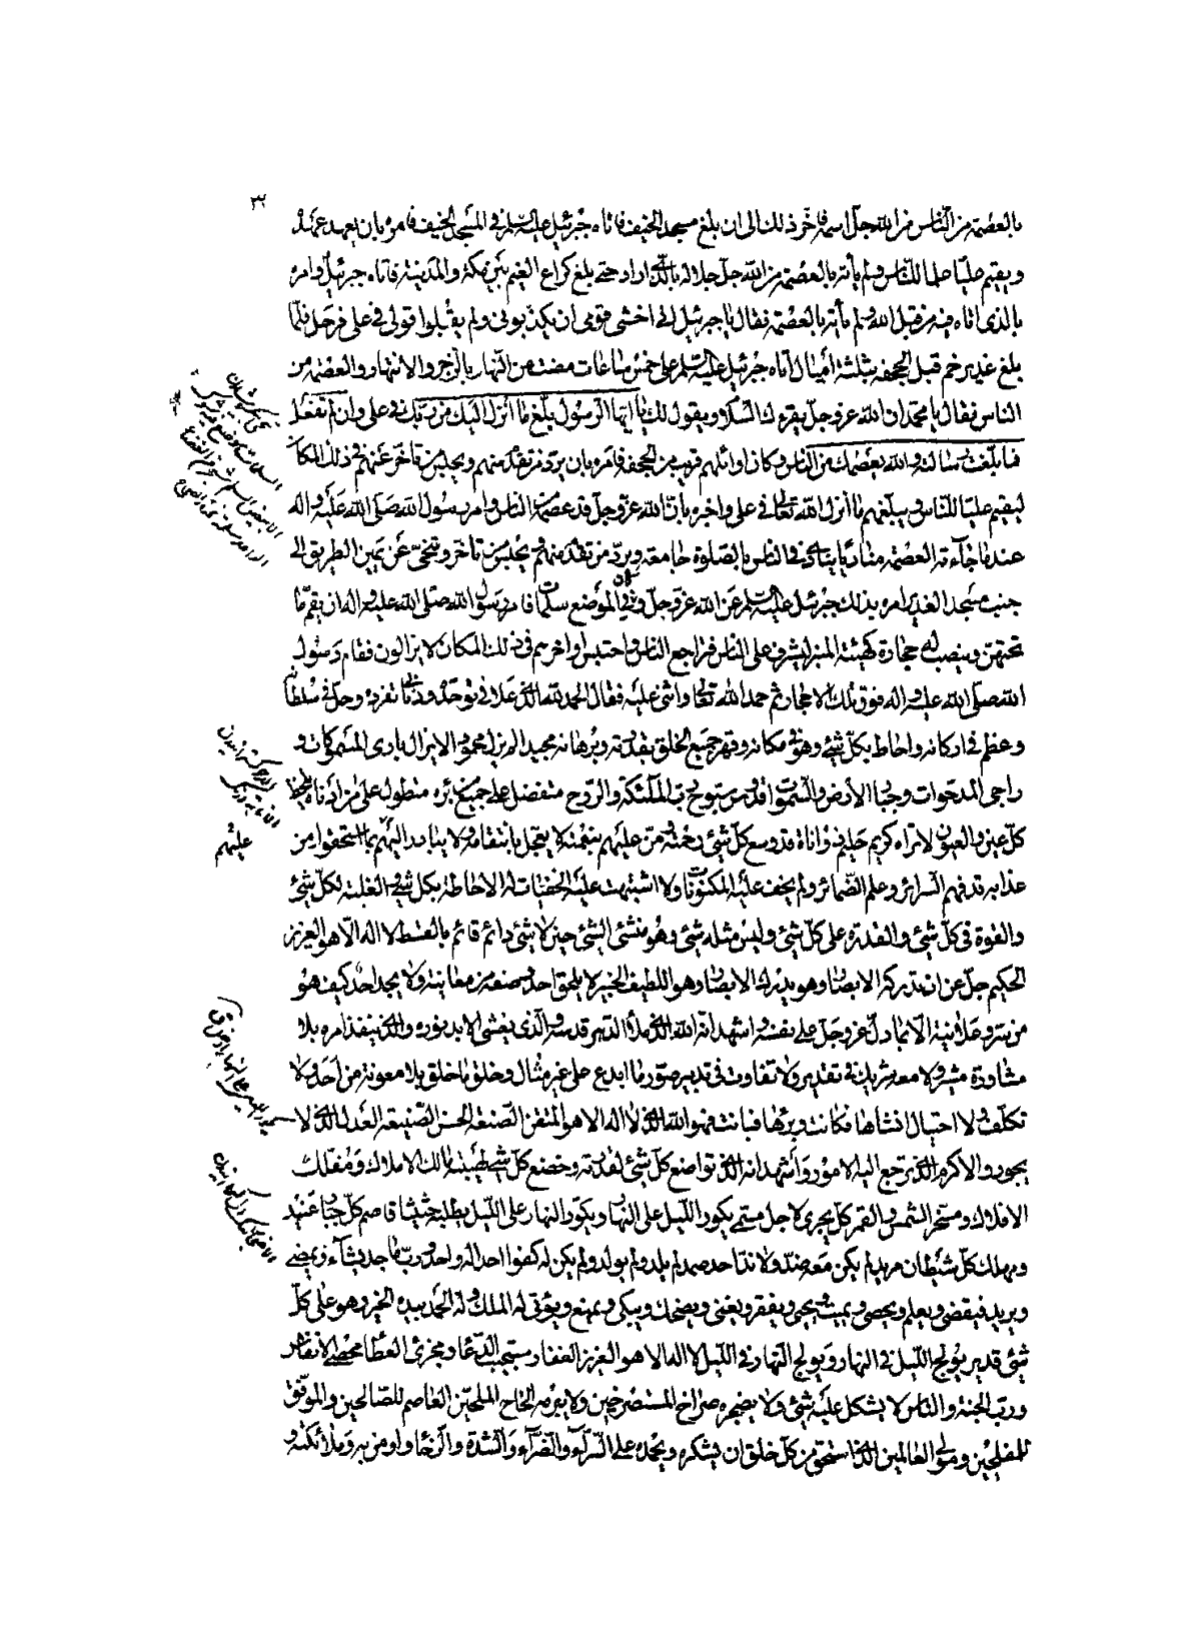 ٣٢
بالعصمة من الناس من الله جل اسمه فاخر ذلك الى ان بلغ مسجد الخيف فاتاه جبرئيل عليه السلام في المسجد الخيف فامره بان يعهد عهده
ويقيم عليا علما للناس ولم يأته بالعصمة من الله جل جلاله بالذي اراد حتى بلغ كراع الغميم بين مكة والمدينة فاتاه جبرئيل وامره
بالذى اتاه فيه من قبل الله ولم يأته بالعصمة فقال يا جبرئيل انى اخشى قومى ان يكذبونى ولم يقبلوا قولى في على فرحل فلما
بلغ غدير خم قبل الجحفة بثلثة أميال أتاه جبرئيل عليه السلام على خمس ساعات مضت من النهار بالزجر والانتهار والعصمة من
الناس فقال يا محمد ان الله عز وجل يقرءك السلام ويقول لك يا ايها الرسول بلغ ما أنزل اليك من ربك في على وان لم تفعل
فما بلغت رسالته والله يعصمك من الناس وكان اوائلهم قريب من الجحفة فامره بان يرد من تقدم منهم ويحبس من تاخر عنهم في ذلك المكان
ليقيم عليا للناس ويبلغهم ما أنزل الله تعالى في على واخبره بان الله عز وجل قد عصمه من الناس وامر رسول الله صلى الله عليه واله
عند ما جاءته العصمة مناديا ينادي في الناس بالصلوة جامعة ويرد من تقدم منهم ويحبس من تاخر وتنحى عن يمين الطريق الى
جنب مسجد الغدير امره بذلك جبرئيل عليه السلام عن الله عز وجل وفي الموضع سلمات فامر رسول الله صلى الله عليه واله ان يقم ما
تحتهن وينصب له حجارة كهيئة المنبر ليشرف على الناس فتراجع الناس واحتبس اواخرهم في ذلك المكان لا يزالون فقام رسول
الله صلى الله عليه واله فوق تلك الاحجار ثم حمد الله تعالى واثنى عليه فقال الحمد لله الذى علا في توحده ودنا في تفرده وجل في سلطانه
وعظم في اركانه واحاط بكل شئ وهو في مكانه وقهر جميع الخلق بقدرته وبرهانه مجيدا لم يزل محمودا لا يزال بارى المسموكات و
داحى المدحوات وجبار الأرض والسموات قدوس سبوح رب الملئكة والروح متفضل على جميع من براه متطول على من ادناه يلحظ
كل عين والعيون لا تراه كريم حليم ذو اناة قد وسع كل شئ رحمته ومن عليهم بنعمته لا يعجل بانتقامه ولا يبادر اليهم بما استحقوا من
عذابه قد فهم السرائر وعلم الضمائر ولم يخف عليه المكنونات ولا اشتبهت عليه الخفيات له الاحاطة بكل شئ والغلبة لكل شئ
والقوة في كل شئ والقدرة على كل شئ وليس مثله شئ وهو منشئ الشئ حين لا شئ دائم قائم بالقسط لا اله الا هو العزيز
الحكيم جل عن ان تدركه الابصار وهو يدرك الابصار وهو اللطيف الخبير لا يلحق احد وصفه من معاينة ولا يجد احد كيف هو
من سر وعلانية الا بما دل عز وجل على نفسه اشهد انه الله الذى ملأ الدهر قدسه والذى يغشى الابد نوره والذى ينفذ امره بلا
مشاورة مشير ولا معه شريك في تقدير ولا تفاوت في تدبير صور ما ابدع على غير مثال وخلق ما خلق بلا معونة من أحد ولا
تكلف ولا احتيال انشاها فكانت وبرئها فبانت فهو الله الذى لا اله الا هو المتقن الصنعة الحسن الصنيعة العدل الذى لا
يجور والاكرم الذى ترجع اليه الامور وأشهد انه الذى تواضع كل شئ لقدرته وخضع كل شئ لهيبته مالك الاملاك ومفلك
الافلاك ومسخر الشمس والقمر كل يجرى لاجل مسمى يكور الليل على النهار ويكور النهار على الليل يطلبه حثيثا قاصم كل جبار عنيد
ومهلك كل شيطان مريد لم يكن معه ضد ولا ند احد صمد لم يلد ولم يولد ولم يكن له كفوا احد اله واحد ورب ماجد يشاء فيمضى
ويريد فيقضى ويعلم ويحصى ويميت ويحيى ويفقر ويغنى ويضحك ويبكى ويمنع ويؤتى له الملك وله الحمد بيده الخير وهو على كل
شئ قدير يولج الليل في النهار ويولج النهار في الليل لا اله الا هو العزيز الغفار مستجيب الدعاء ومجزى العطاء محصى الانفاس
ورب الجنة والناس لا يشكل عليه شئ ولا يضجره صراخ المستصرخين ولا يبرمه الحاح الملحين العاصم للصالحين والموفق
للمفلحين ومولى العالمين الذى استحق من كل خلق ان يشكره ويحمده على السراء والضراء والشدة والرخاء واومن به وملائكته و
عليهم